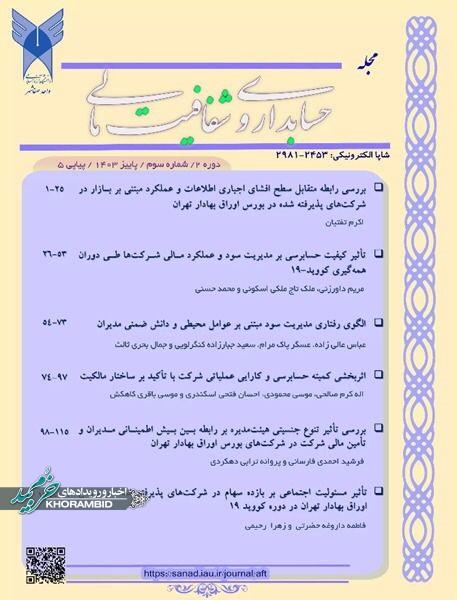 مجله
حسابداری و شفافیت مالی
شاپا الکترونیکی: ۲۴۵۳-۲۹۸۱
دوره ۲/ شماره سوم / پاییز ۱۴۰۳ / پیاپی ۵
بررسی رابطه متقابل سطح افشای اجباری اطلاعات و عملکرد مبتنی بر بازار در ۱-۲۵
شرکت‌های پذیرفته شده در بورس اوراق بهادار تهران
اکرم تفتیان
تأثیر کیفیت حسابرسی بر مدیریت سود و عملکرد مالی شرکت‌ها طی دوران ۲۶-۵۳
همه‌گیری کووید-۱۹
مریم داورزنی، ملک تاج ملکی اسکوئی و محمد حسنی
الگوی رفتاری مدیریت سود مبتنی بر عوامل محیطی و دانش ضمنی مدیران ۵۴-۷۳
عباس عالی زاده، عسگر پاک مرام، سعید جبارزاده کنگرلویی و جمال بحری ثالث
اثربخشی کمیته حسابرسی و کارایی عملیاتی شرکت با تأکید بر ساختار مالکیت ۷۴-۹۷
اله کرم صالحی، موسی محمودی، احسان فتحی اسکندری و موسی باقری کاهکش
بررسی تأثیر تنوع جنسیتی هیئت‌مدیره بر رابطه بین بیش اطمینانی مدیران و ۹۸-۱۱۵
تأمین مالی شرکت در شرکت‌های بورس اوراق بهادار تهران
فرشید احمدی فارسانی و پروانه ترابی دهکردی
تأثیر مسئولیت اجتماعی بر بازده سهام در شرکت‌های
اوراق بهادار تهران در دوره کووید ۱۹
فاطمه داروغه حضرتی و زهرا رحیمی
اخبار و رویدادهای خرمبید
KHORAMBID
https://sanad.iau.ir/journal/aft